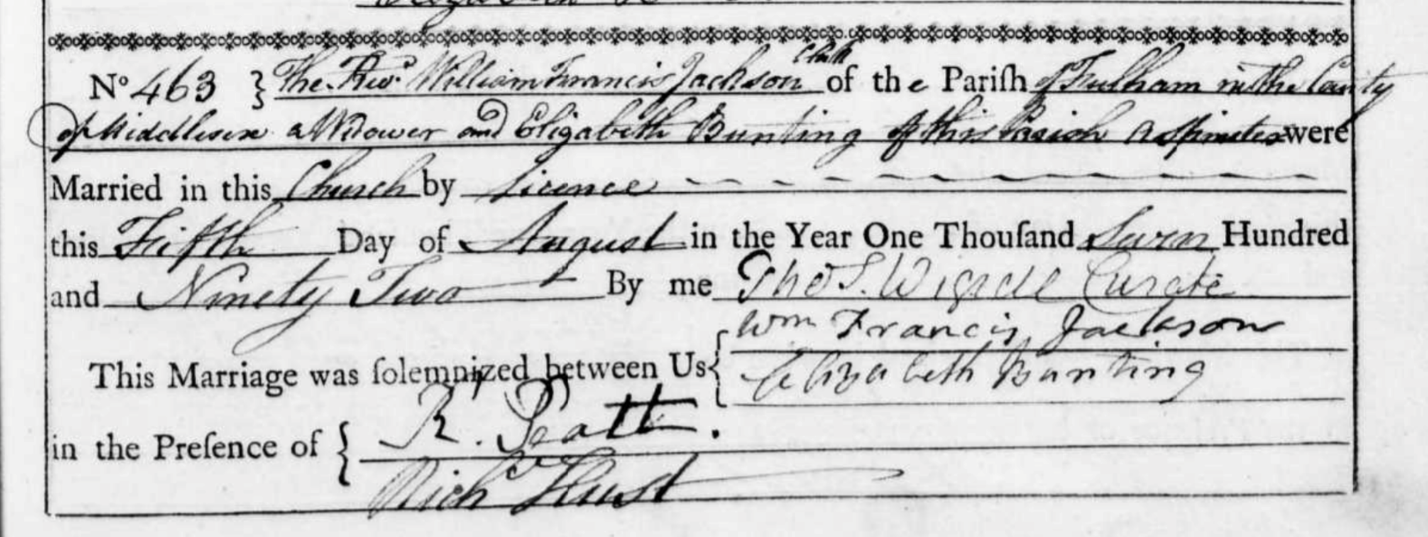 No 463 } The Revd. William Francis Jackson Clerk of the Pariſh of Fulham in the County
of Middlesex a Widower and Elizabeth Bunting of this Parish a Spinster were
Married in this Church by Licence
this Fifth Day of August in the Year One Thouſand Seven Hundred
and Ninety Two By me Thos. Curate
This Marriage was ſolemnized between Us { Wm Francis Jackson
Elizabeth Bunting
in the Preſence of { R. Peatt.
Richd